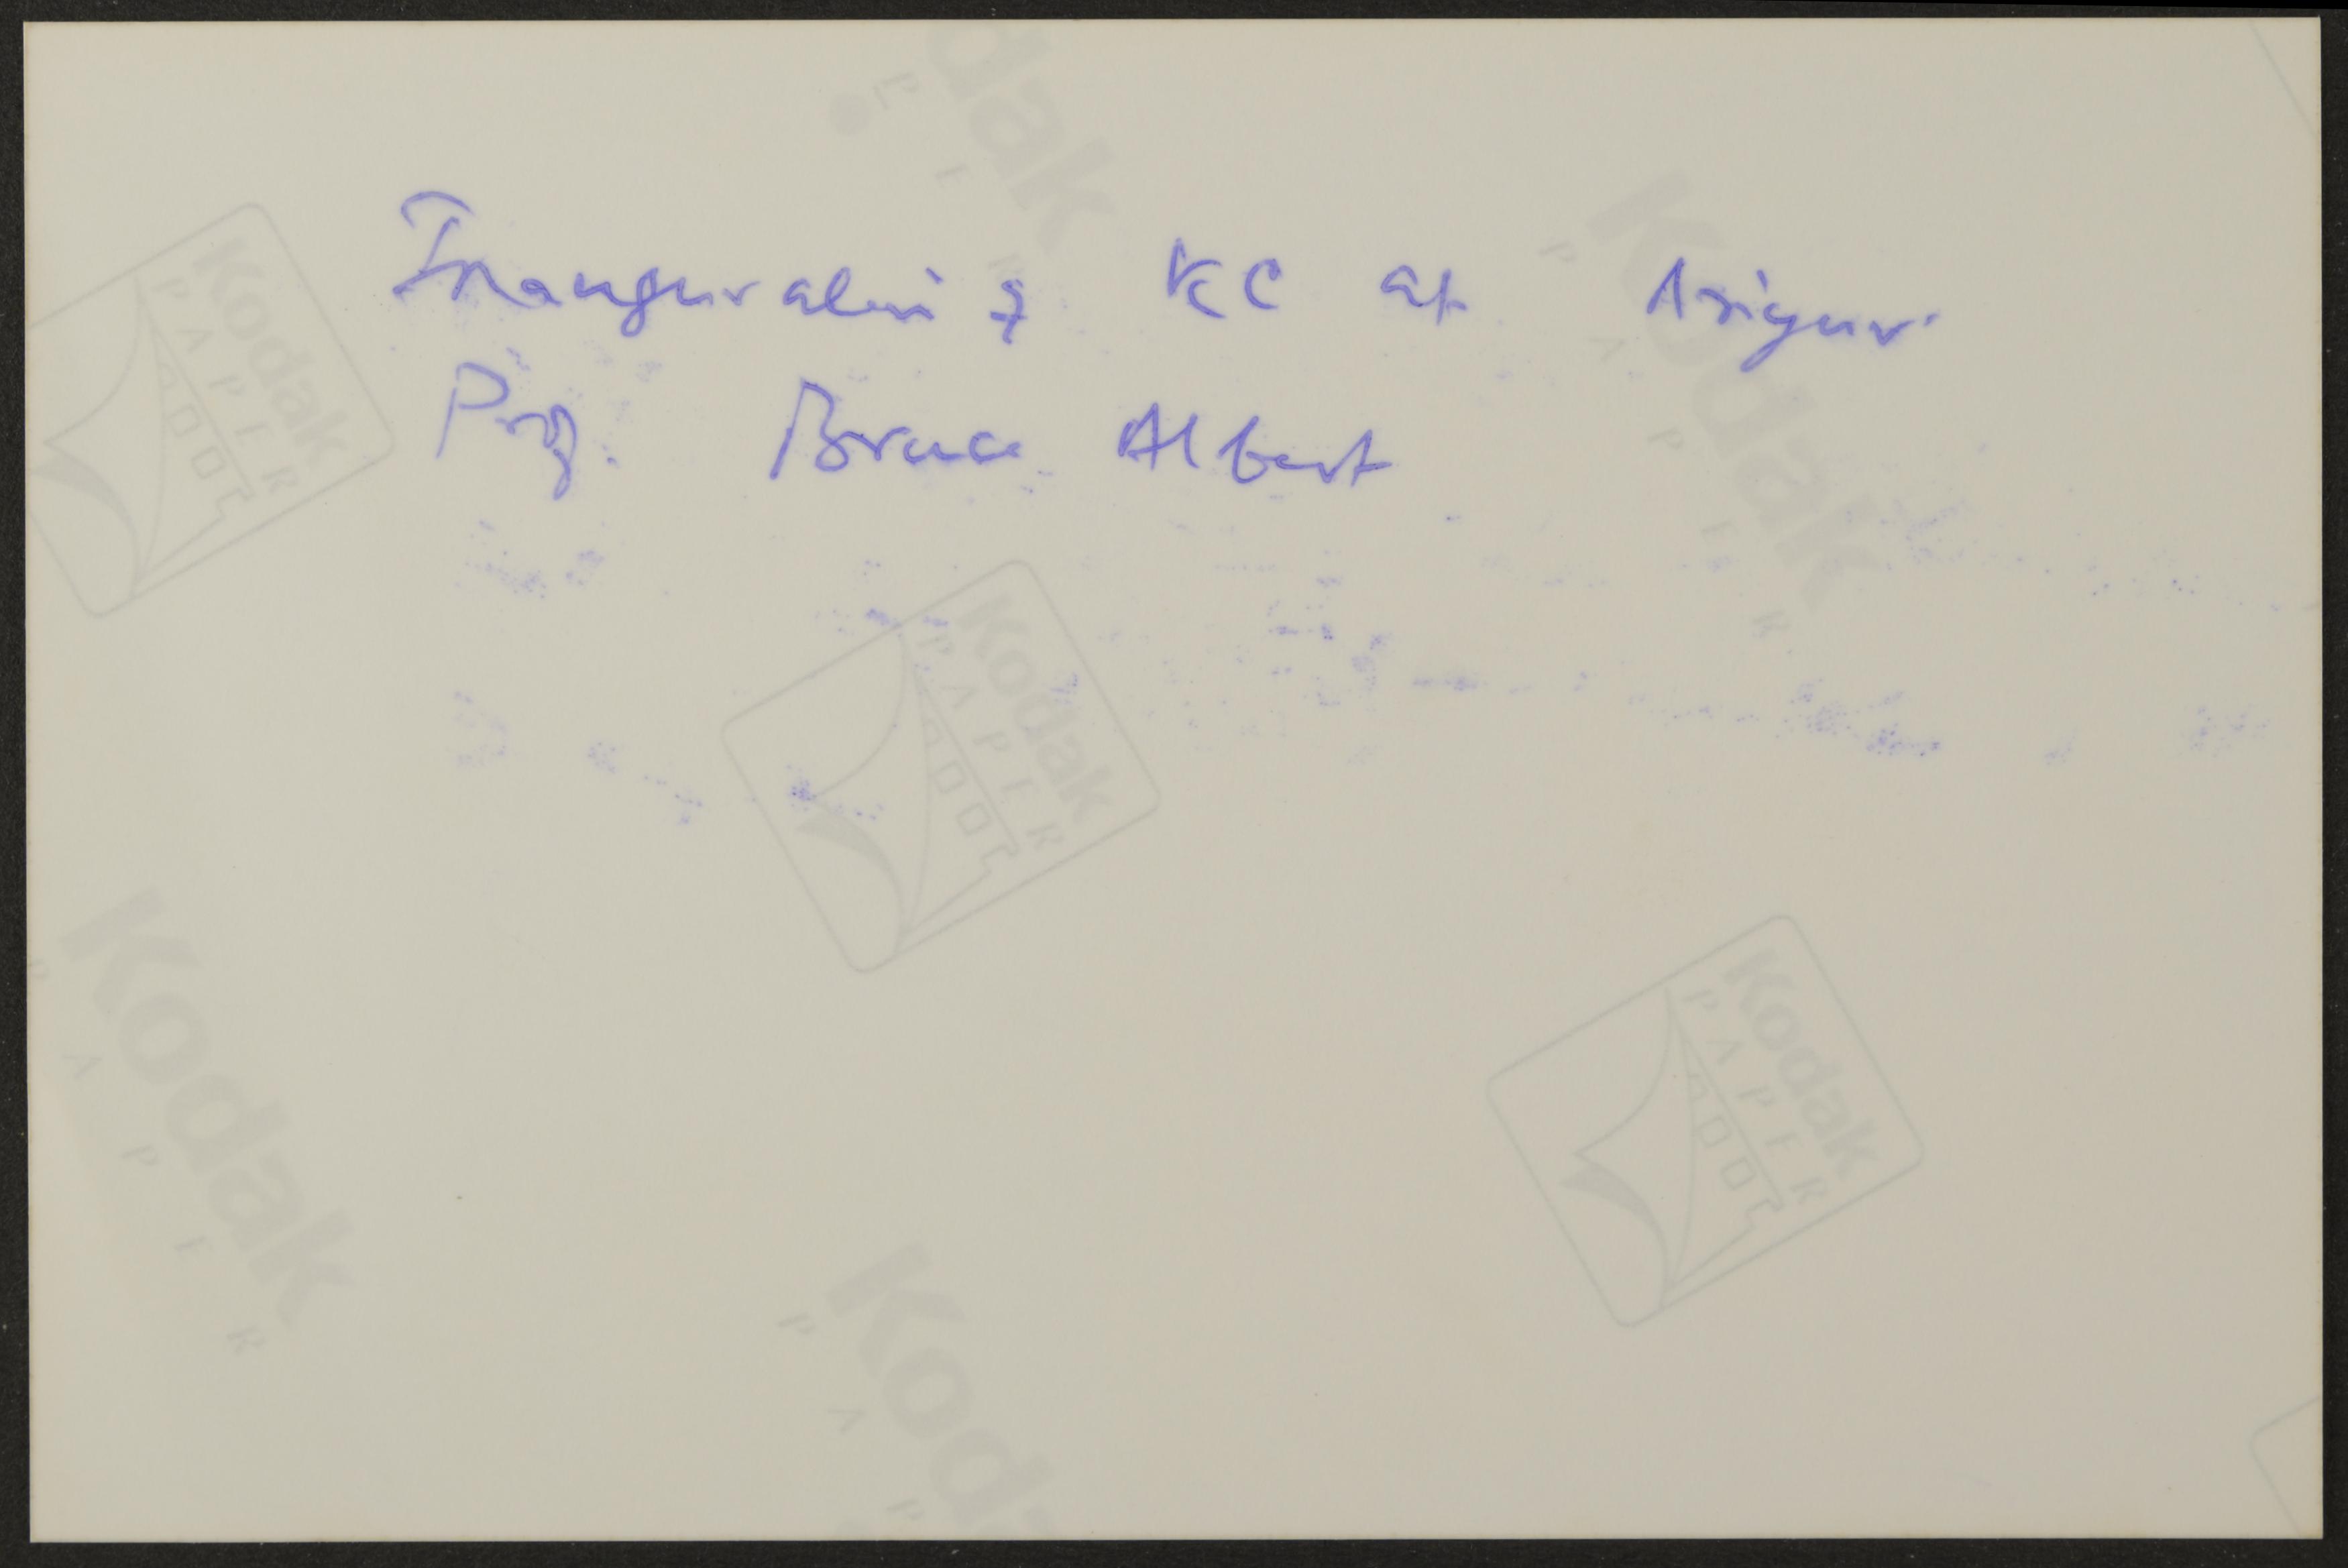 Inauguration of KC at Ariyur.
Prof. Bruce Albert
Kodak
PAPER
Kodak
PAPER
Kodak
PAPER
Kodak
PAPER
Kodak
PAPER
Kodak
PAPER